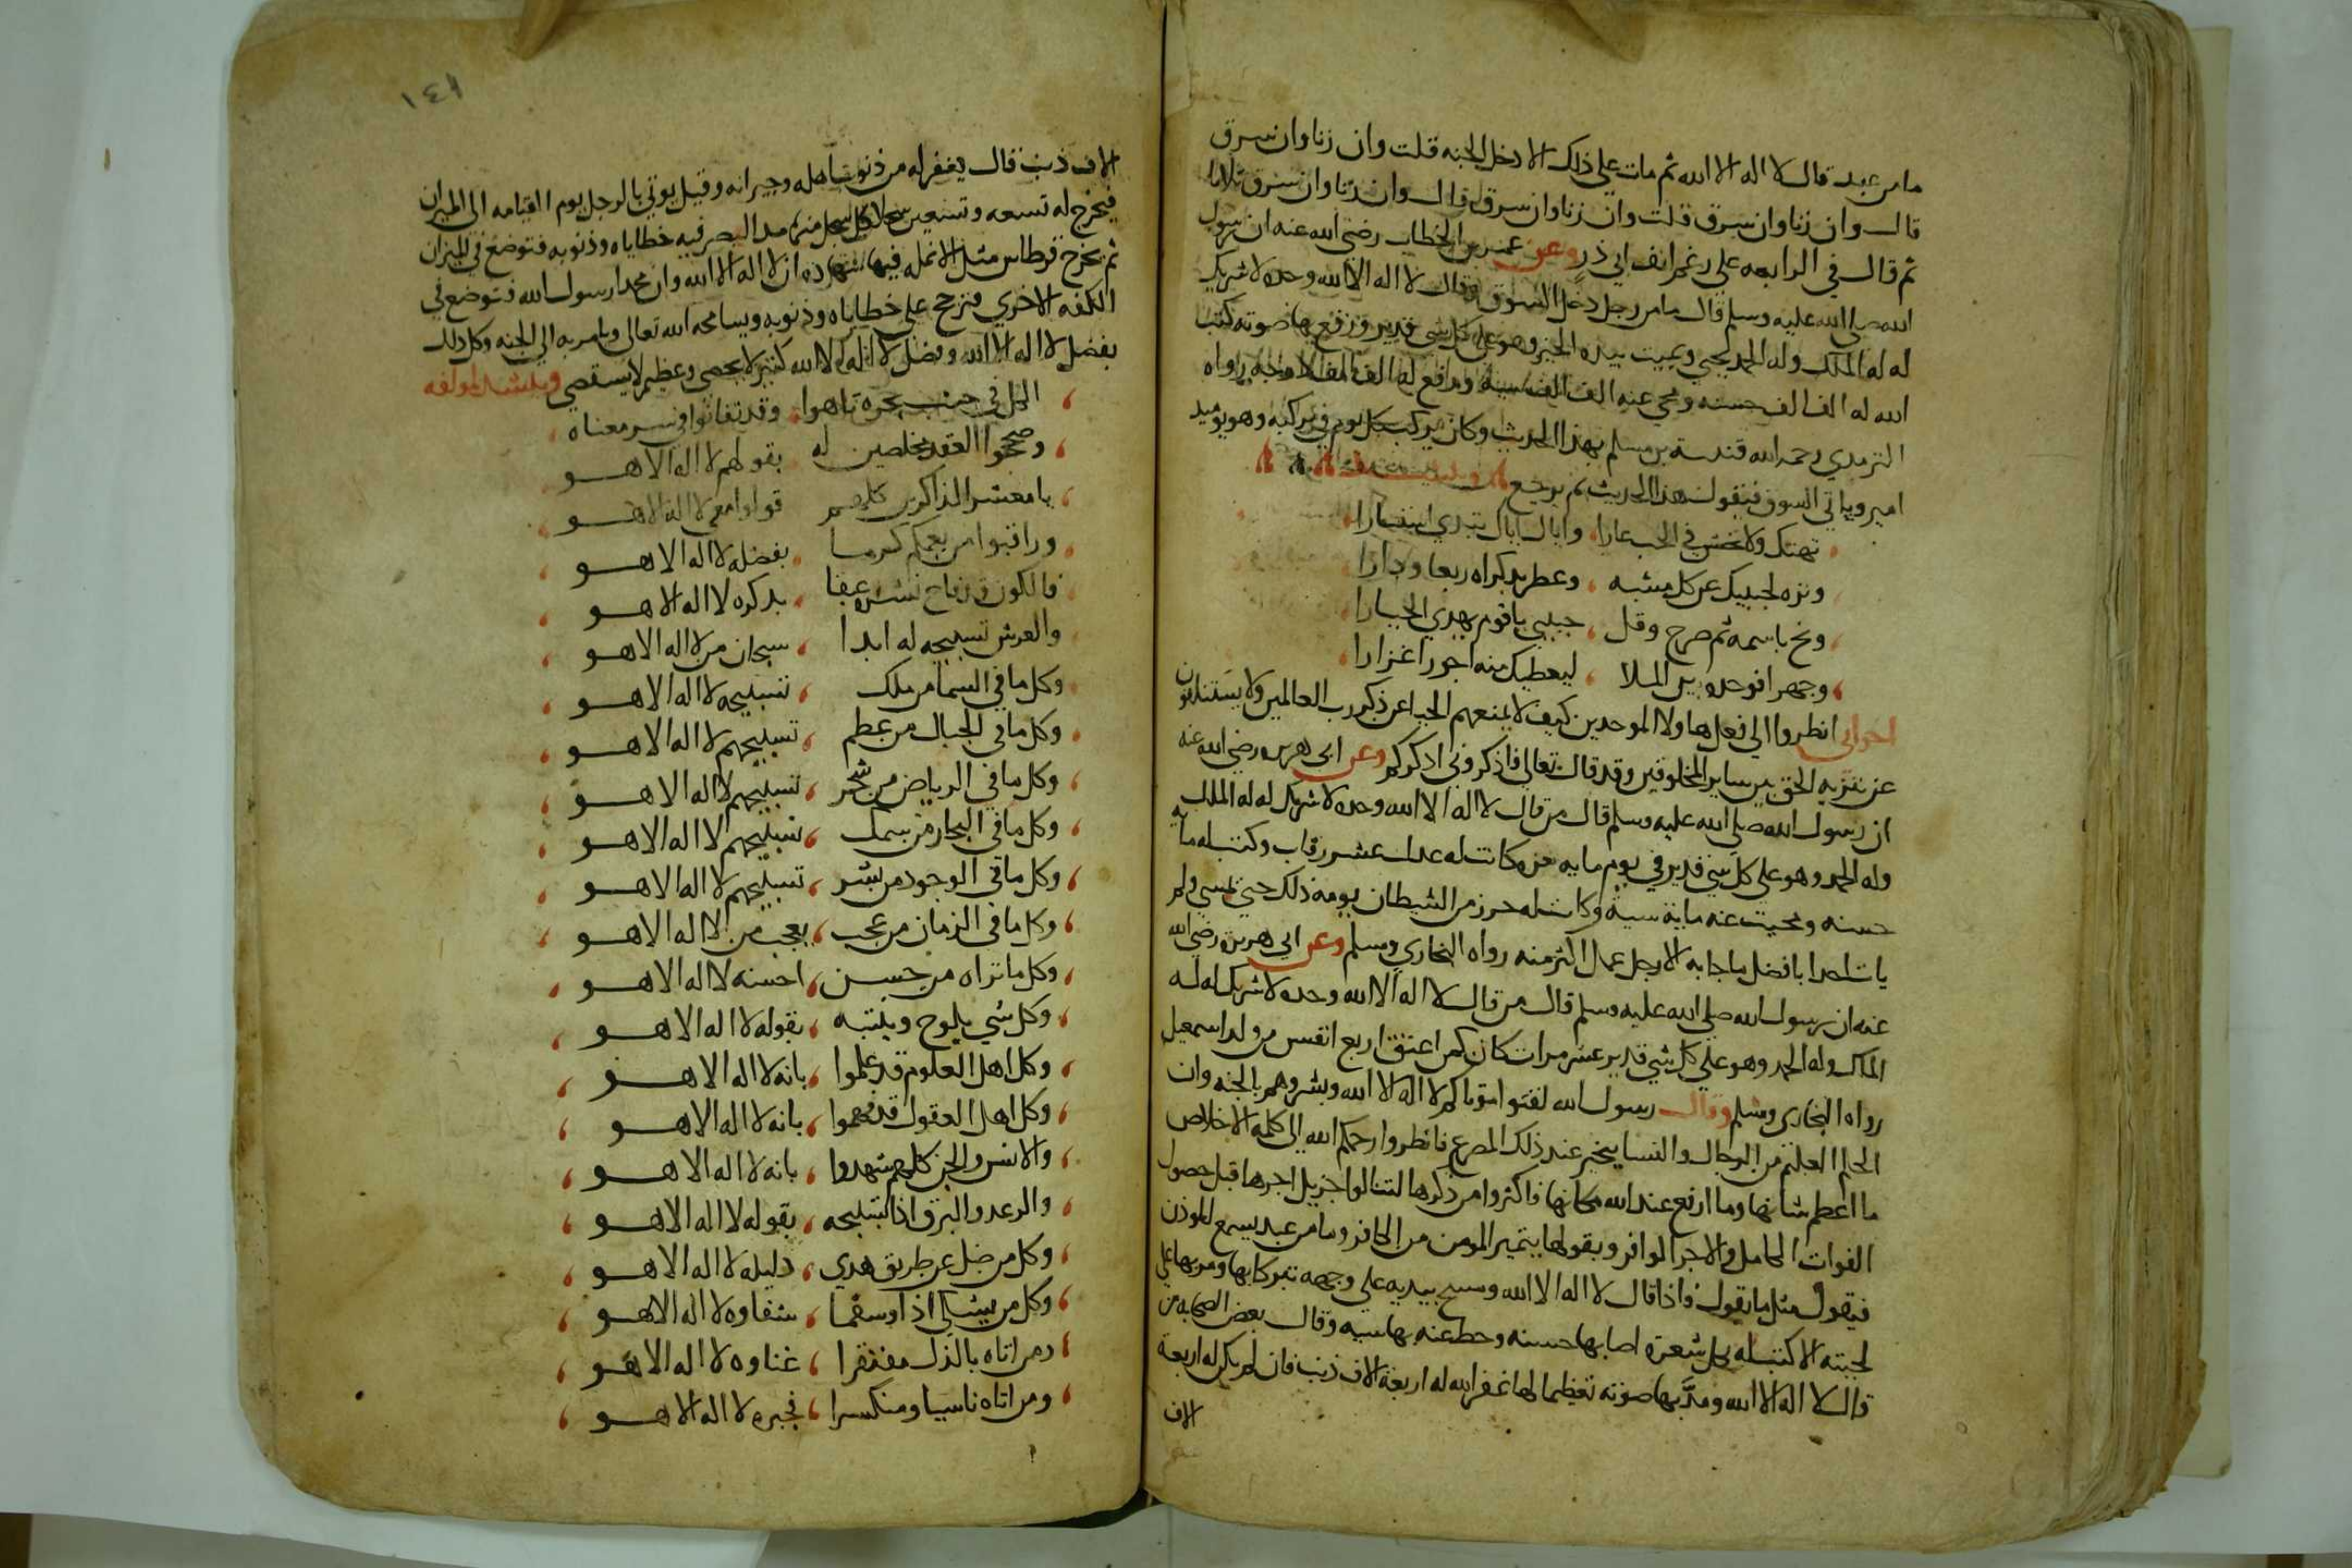 ما من عبد قال لا اله الا الله ثم مات على ذلك الا دخل الجنه قلت وان زنا وان سرق
قال وان زنا وان سرق قلت وان زنا وان سرق قال وان زنا وان سرق ثلاثا
ثم قال في الرابعه على رغم انف ابي ذر وعن عمر بن الخطاب رضي الله عنه ان رسول
الله صلى الله عليه وسلم قال ما من رجل دخل السوق وقال لا اله الا الله وحده لا شريك
له له الملك وله الحمد يحيي ويميت بيده الخير وهو على كل شي قدير ورفع بها صوته كتب
الله له الف الف حسنه ومحي عنه الف الف سيئة ورفع له الف الف درجه رواه
الترمدي رحمه الله قتيبة بن مسلم بهذا الحديث وكان يركب كل يوم في مركبه وهو يوميد
امير وياتي السوق فيقول هذا الحديث ثم يرجع
تهتك ولا تخش في الحب عارا واياك اياك تبدي استتارا
ونزه لحبيبك عن كل مشبه وعطر بذكراه ربعا ودارا
ونح باسمه ثم صرح وقل حبيبي يا قوم يهدي الحيارا
وجهرا فوحده بين الملا ليعطيك منه اجورا غزارا
اخواني انظروا الى فعل هاولا الموحدين كيف لا يمنعهم الحيا عن ذكر رب العالمين ولا يستنكفون
عن تنزيه الحق بين ساير المخلوقين وقد قال تعالى فاذكروني اذكركم وعن ابي هريره رضي الله عنه
ان رسول الله صلى الله عليه وسلم قال من قال لا اله الا الله وحده لا شريك له له الملك
وله الحمد وهو على كل شي قدير في يوم مايه مره كانت له عدل عشر رقاب وكتب له مايه
حسنه ومحيت عنه ماية سيئة وكانت له حرز من الشيطان يومه ذلك حتي يمسي ولم
يات احدا بافضل ما جا به الا رجل عمل اكثر منه رواه البخاري ومسلم وعن ابي هريرة رضي الله
عنه ان رسول الله صلى الله عليه وسلم قال من قال لا اله الا الله وحده لا شريك له له
الملك وله الحمد وهو على كل شي قدير عشر مرات كان كمن اعتق اربع انفس من ولد اسمعيل
رواه البخاري ومسلم وقال رسول الله لقنوا موتاكم لا اله الا الله وبشروهم بالجنه وان
الحليم العليم من الرجال والنسا يتحير عند ذلك المصرع فانظروا رحمكم الله الى كلمة الاخلاص
ما اعظم شانها وما ارفع عند الله مكانها فاكثروا من ذكرها لتنالوا جزيل اجرها قبل حصول
الفوات الحامل والاجر الوافر وبقولها يتميز المومن من الكافر وما من عبد يسمع الموذن
فيقول مثل ما يقول فاذا قال لا اله الا الله ومسح بيديه على وجهه تبركا بها ومر بها على
لحيته الا كتب له بكل شعرة اصابها حسنه وحط عنه بها سيه وقال بعض الصحابه من
قال لا اله الا الله ومدَّ بها صوته تعظيما لها غفر الله له اربعة الاف ذنب فان لم يكن له اربعة
الاف
١٤١
الاف ذنب قال يغفر له من ذنوب اهله وجيرانه وقيل يوتي بالرجل يوم القيامه الى الميزان
فيخرج له تسعه وتسعين سجلا كل سجل منها مد البصر فيه خطاياه وذنوبه فتوضع في الميزان
ثم يخرج قرطاس مثل الانمله فيها شهادة ان لا اله الا الله وان محمدا رسول الله فتوضع في
الكفه الاخري فترجح على خطاياه وذنوبه ويسامحه الله تعالى ويامر به الى الجنه وكل ذلك
بفضل لا اله الا الله وفضل لا اله الا الله كثير لا يحصى وعظيم لا يستقصي وينشد لمولفه
الكل في حب بحره تاهوا وقد تفانوا في سر معناه
وصححوا العقد مخلصين له بقولهم لا اله الا هو
يا معشر الذاكرين كلهم قولوا معي لا اله الا هو
وراقبوا من يعمكم كرما بفضله لا اله الا هو
فالكون قد فاح نشره عبقا بذكره لا اله الا هو
والعرش تسبيحه له ابدا سبحان من لا اله الا هو
وكل ما في السما من ملك تسبيحه لا اله الا هو
وكل ما في الجبال من عظم تسبيحهم لا اله الا هو
وكل ما في الرياض من شجر تسبيحهم لا اله الا هو
وكل ما في البحار من سمك تسبيحهم لا اله الا هو
وكل ما في الوجود من بشر تسبيحهم لا اله الا هو
وكل ما في الزمان من عجب يعجب من لا اله الا هو
وكل ما تراه من حسن احسنه لا اله الا هو
وكل شي يلوح وينتبه بقوله لا اله الا هو
وكل اهل العلوم قد علموا بانه لا اله الا هو
وكل اهل العقول قد فهموا بانه لا اله الا هو
والانس والجن كلهم شهدوا بانه لا اله الا هو
والرعد والبرق اذا تسبيحه بقوله لا اله الا هو
وكل من ضل عن طريق هدي دليله لا اله الا هو
وكل من يشتكي اذا وسقما شفاوه لا اله الا هو
ومن اتاه بالذل مفتقرا غناوه لا اله الا هو
ومن اتاه ناسيا ومنكسرا فجبره لا اله الا هو